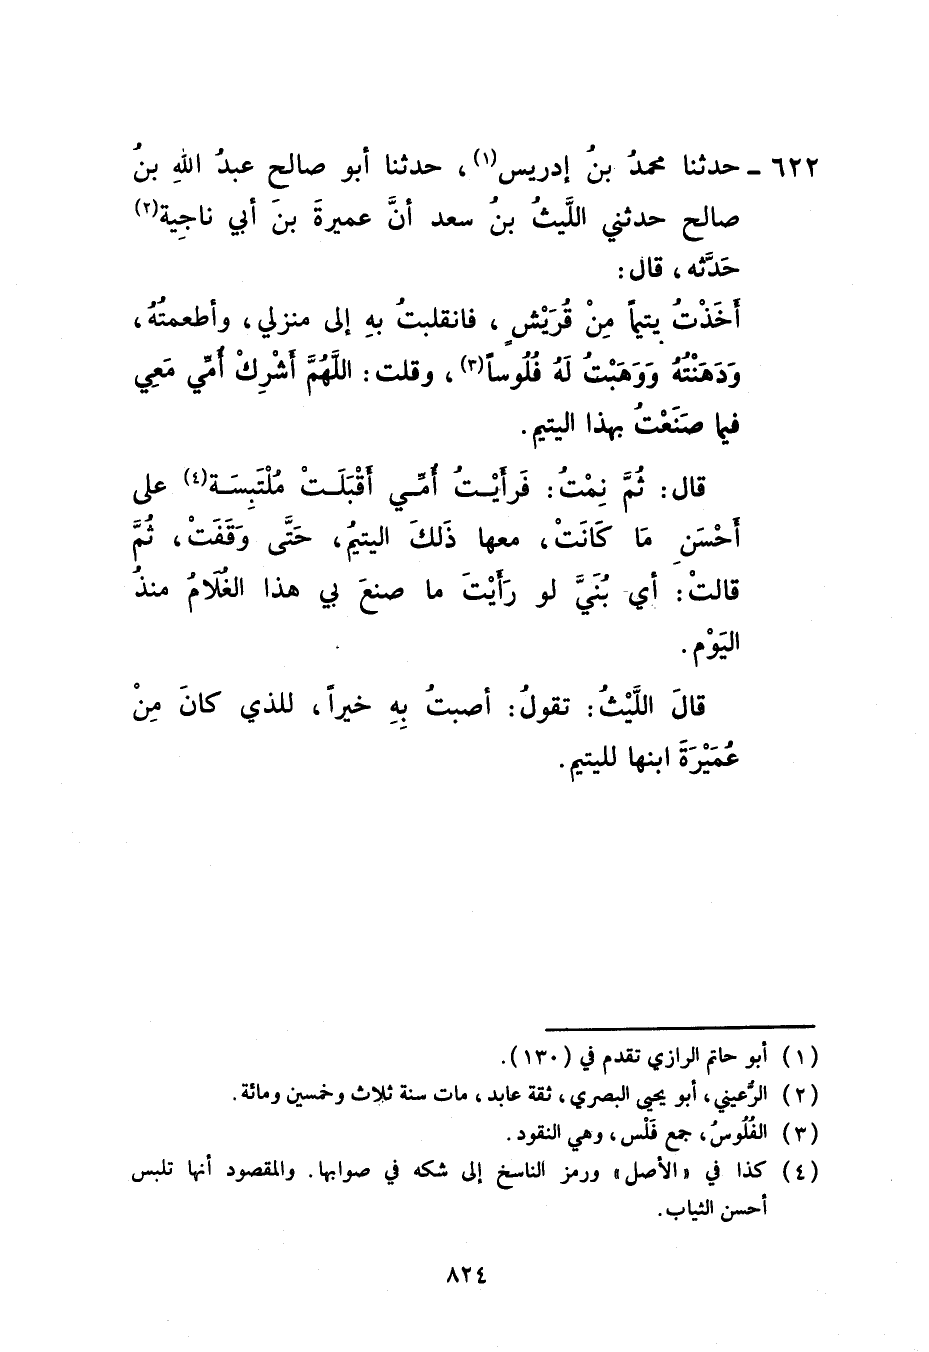 ٦٢٢ ـ حدثنا محمدُ بنُ إدريس(١)، حدثنا أبو صالح عبدُ اللهِ بنُ
صالح حدثني اللَّيثُ بنُ سعد أنَّ عميرةَ بنَ أبي ناجِية(٢)
حَدَّثه، قال:
أَخَذْتُ يتيماً مِنْ قُرَيْشٍ، فانقلبتُ بهِ إلى منزلي، وأطعمتُهُ،
وَدَهَنْتُهُ وَوَهَبْتُ لَهُ فُلُوساً(٣)، وقلت: اللَّهُمَّ أَشْرِكْ أُمِّي مَعِي
فيما صنَعْتُ بهذا اليتيم.
قال: ثُمَّ نِمْتُ: فَرأَيْتُ أُمِّي أَقْبَلَتْ مُلْتَبِسَة(٤) على
أَحْسَنِ مَا كَانَتْ، معها ذَلكَ اليتيمُ، حَتَّى وَقَفَتْ، ثُمَّ
قالتْ: أي بُنَيَّ لو رَأَيْتَ ما صنعَ بي هذا الغُلَامُ منذُ
اليَوْم.
قالَ اللَّيْثُ: تقولُ: أصبتُ بِهِ خيراً، للذي كانَ مِنْ
عُمَيْرَةَ ابنها لليتيم.
(١) أبو حاتم الرازي تقدم في (١٣٠).
(٢) الرُّعيني، أبو يحيى البصري، ثقة عابد، مات سنة ثلاث وخمسين ومائة.
(٣) الفُلُوسُ، جمع فَلْس، وهي النقود.
(٤) كذا في «الأصل» ورمز الناسخ إلى شكه في صوابها. والمقصود أنها تلبس
أحسن الثياب.
٨٢٤